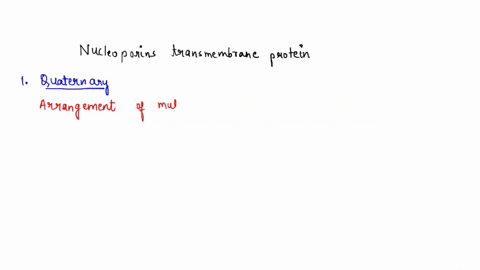 Nucleoporins transmembrane protein
1. Quaternary
Arrangement of mul